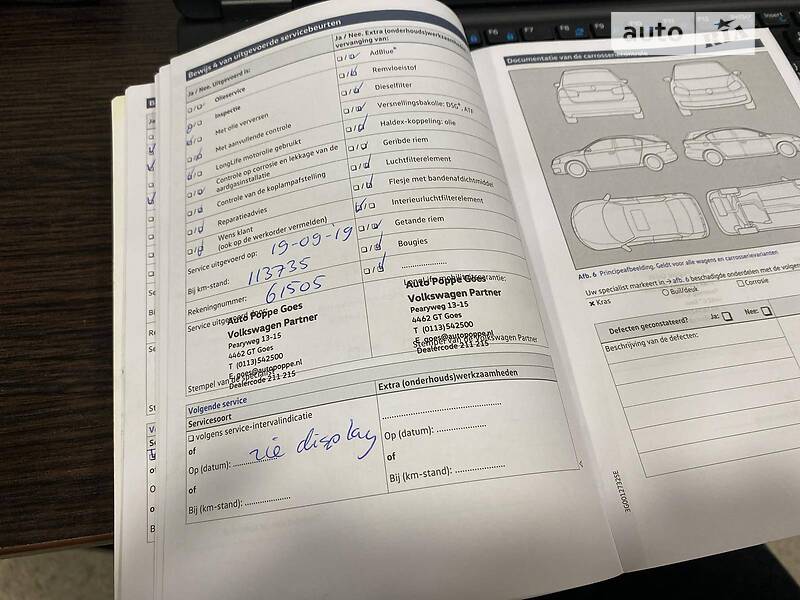 Bewijs 4 van uitgevoerde servicebeurten
Ja / Nee. Uitgevoerd is:
Olieservice
Inspectie
Met olie verversen
Met aanvullende controle
LongLife motorolie gebruikt
Controle op corrosie en lekkage van de
aardgasinstallatie
Controle van de koplampafstelling
Reparatieadvies
Wens klant
(ook op de werkorder vermelden)
Service uitgevoerd op: 19-09-'19
Bij km-stand: 113735
Rekeningnummer: 61505
Service uitgevoerd door:
Auto Poppe Goes
Volkswagen Partner
Pearyweg 13-15
4462 GT Goes
T (0113)542500
E goes@autopoppe.nl
Dealercode 211 215
Stempel van de specialist
Ja / Nee. Extra (onderhouds)werkzaamheden
vervanging van:
AdBlue®
Remvloeistof
Dieselfilter
Versnellingsbakolie: DSG®,
Haldex-koppeling: olie
Geribde riem
Luchtfilterelement
Flesje met bandenafdichtmiddel
Interieurluchtfilterelement
Getande riem
Bougies
Auto Poppe Goes
Volkswagen Partner
Pearyweg 13-15
4462 GT Goes
T (0113)542500
E goes@autopoppe.nl
Stempel van de Volkswagen Partner
Dealercode 211 215
Volgende service
Servicesoort
volgens service-intervalindicatie
of
Op (datum):
zie display
of
Bij (km-stand):
Extra (onderhouds)werkzaamheden
Op (datum):
Bij (km-stand):
Documentatie van de carrosseriecontrole
Afb. 6 Principeafbeelding. Geldt voor alle wagens en carrosserievarianten
Uw specialist markeert in → afb. 6 beschadigde onderdelen met de volgen
× Kras
○ Buil/deuk
□ Corrosie
Defecten geconstateerd? Ja: Nee:
Beschrijving van de defecten:
3G0012732SE
auto